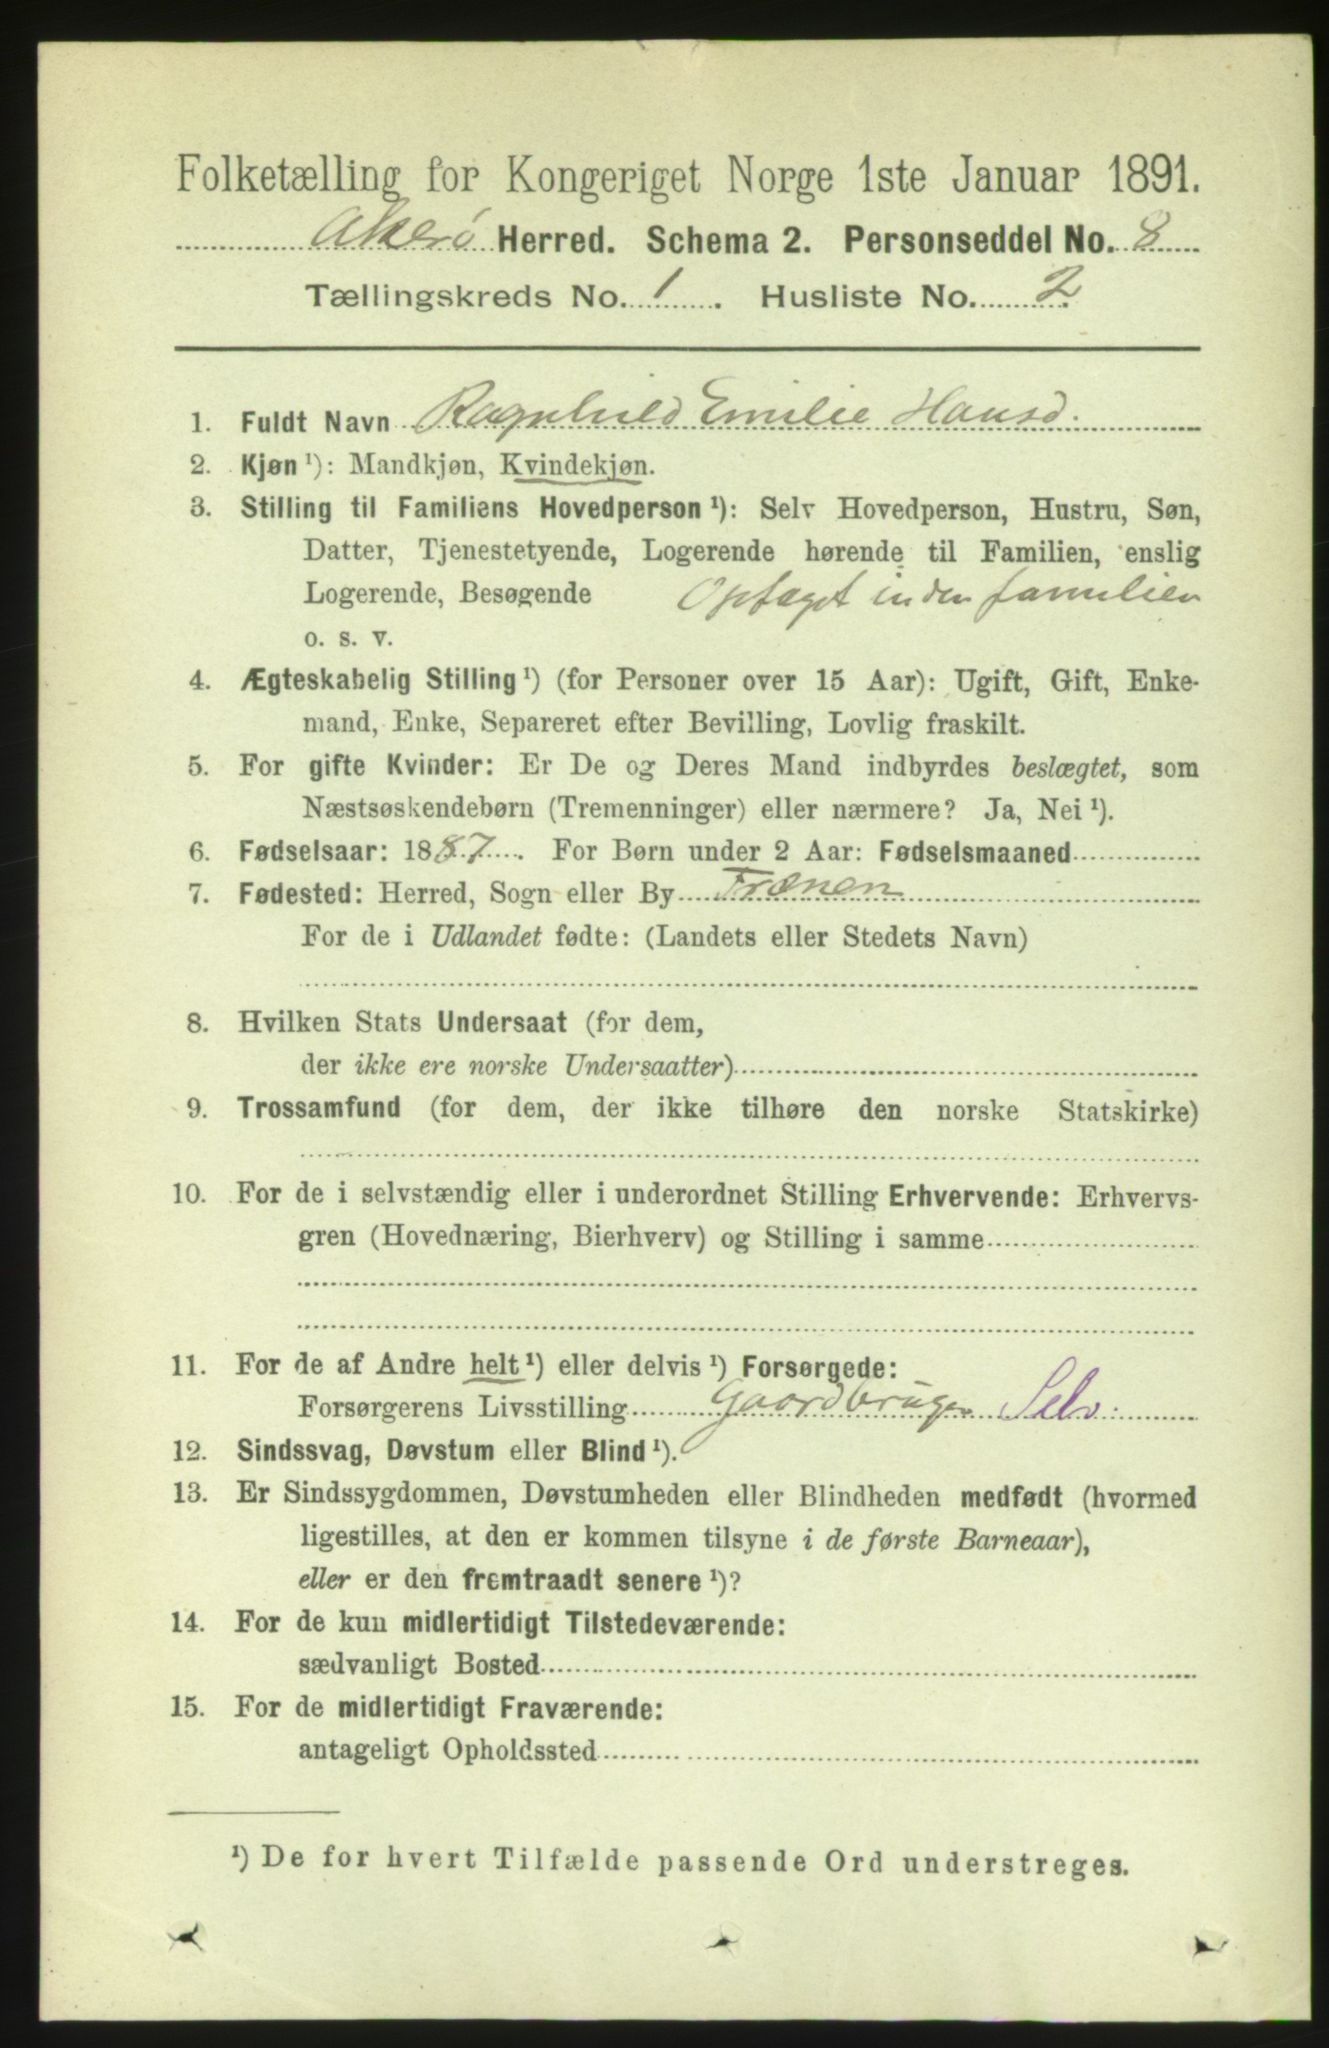 Folketælling for Kongeriget Norge 1ste Januar 1891.
Akerø Herred. Schema 2. Personseddel No. 8
Tællingskreds No. 1. Husliste No. 2.
1. Fuldt Navn Ragnhild Emilie Hansd.
2. Kjøn ¹): Mandkjøn, Kvindekjøn.
3. Stilling til Familiens Hovedperson ¹): Selv Hovedperson, Hustru, Søn,
Datter, Tjenestetyende, Logerende hørende til Familien, enslig
Logerende, Besøgende Optaget inden familien
o. s. v.
4. Ægteskabelig Stilling ¹) (for Personer over 15 Aar): Ugift, Gift, Enke-
mand, Enke, Separeret efter Bevilling, Lovlig fraskilt.
5. For gifte Kvinder: Er De og Deres Mand indbyrdes beslægtet, som
Næstsøskendebørn (Tremenninger) eller nærmere? Ja, Nei ¹).
6. Fødselsaar: 1887. For Børn under 2 Aar: Fødselsmaaned
7. Fødested: Herred, Sogn eller By Frænen
For de i Udlandet fødte: (Landets eller Stedets Navn)
8. Hvilken Stats Undersaat (for dem,
der ikke ere norske Undersaatter)
9. Trossamfund (for dem, der ikke tilhøre den norske Statskirke)
10. For de i selvstændig eller i underordnet Stilling Erhvervende: Erhvervs-
gren (Hovednæring, Bierhverv) og Stilling i samme
11. For de af Andre helt ¹) eller delvis ¹) Forsørgede:
Forsørgerens Livsstilling Gaardbruger Selv.
12. Sindssvag, Døvstum eller Blind ¹).
13. Er Sindssygdommen, Døvstumheden eller Blindheden medfødt (hvormed
ligestilles, at den er kommen tilsyne i de første Barneaar),
eller er den fremtraadt senere ¹)?
14. For de kun midlertidigt Tilstedeværende:
sædvanligt Bosted
15. For de midlertidigt Fraværende:
antageligt Opholdssted
¹) De for hvert Tilfælde passende Ord understreges.